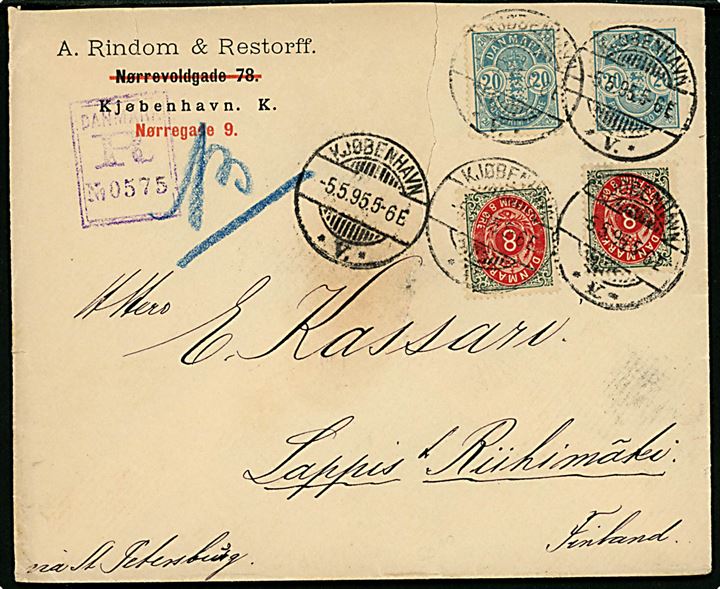 A. Rindom & Restorff.
Nørrevoldgade 78.
Kjøbenhavn. K.
Nørregade 9.
DANMARK
R
No 0575
KJØBENHAVN
-5.5.95.5-6E
V.
KJØBENHAVN
DANMARK
20 20
V.
KJØBENHAVN
-5.5.95.5-6E
20 20
V.
KJØBENHAVN
POSTFRIM 8 ØRE
8
DANMARK
KJØBENHAVN
8
DANMARK
V.
Herr
E. Kassari.
Lappis Riihimäki.
Finland.
via St Petersburg.